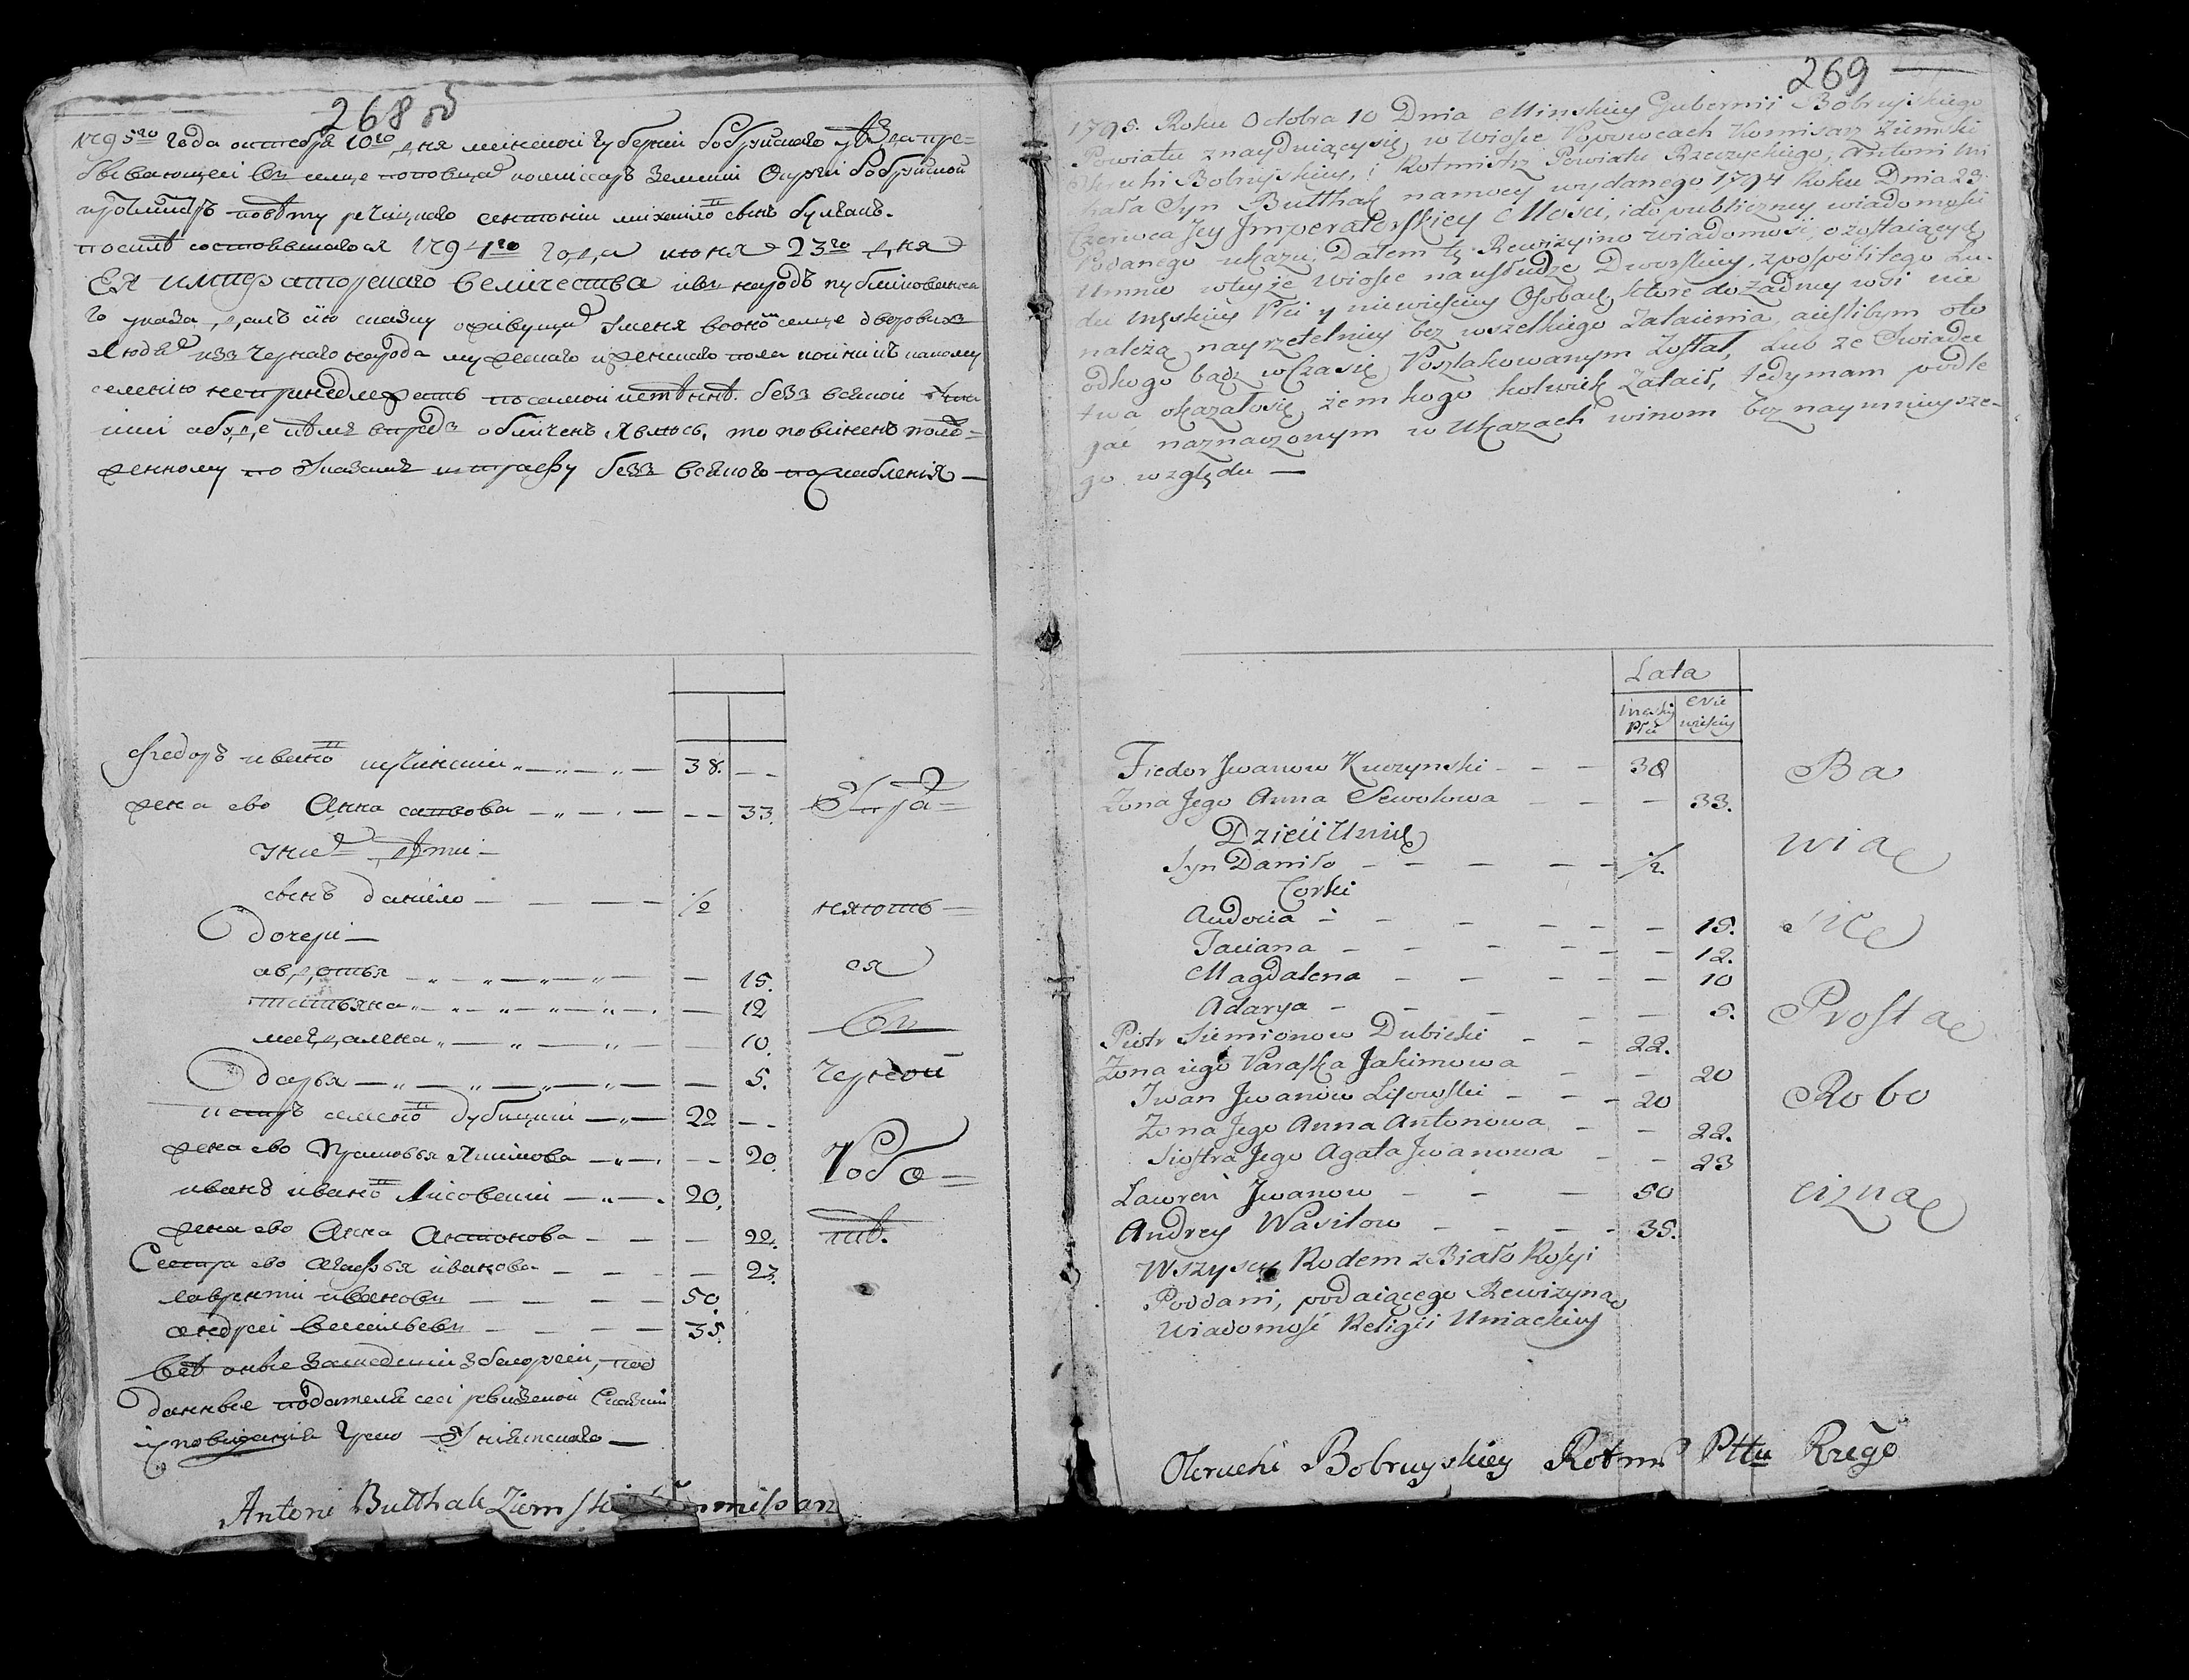 268 об
1795го года октебря 10го дня минской губерни бобруйского уезда пре=
бывающей в селце поповцах комисаръ земский Округи бобруйской
ротмистръ повѣту речицкого антоний михайло сынъ булгакъ.
посилѣ состоявшагося 1794го года июня 23го дня
Ея императорскаго величества и въ народъ публикованна
го указа, далъ сию сказку о живущих у меня в оном селце дворовых
людях изъ чернаго народа мужескаго и женскаго пола кои ни къ какому
селению непринадлежать по самой истѣннѣ безъ всякой утаи
обличенъ явлюсь, то повиненъ полѣ=
женному по указамъ штрафу безъ всякого
федоръ ивановъ кучинский 38.
жена ево Анна савова 33.
у них дѣти
сынъ данило 1/2
дочери
авдотья 15.
татьяна 12
магдалена 10.
дарья 5.
петръ семенов дубицкий 22
жена ево Прасковья Якимова 20.
иванъ иванов Лисовский 20.
жена ево Анна Антонова 22.
Сестра ево Агафья иванова 23.
лаврентий ивановъ 50
андрей васильевъ 35.
Всѣ оные зашедший з белорусии, под
данные подателя сей ревизской Сказки
греко Униятскаго
Упра=
жняють=
ся
въ
черной
Робо=
тѣ.
Antoni Butthak Ziemski Komisarz
269
1795. Roku Octobra 10 Dnia Minskiey Gubernii Bobruyskiego
Powiatu znayduiącysię w Wiosce Popowcach Komisarz Ziemski
Okruhi Bobruyskiey, i Rotmistrz Powiatu Rzeczyckiego, Antoni Mi
chała Syn Butthak namocy wydanego 1794 Roku Dnia 23
Czerwca Jey Imperatorskiey Mości, ido publiczney wiadomości
Podanego ukazu, Dałem tę Rewizyino wiadomość, ozostaiących
Umnie wteyże Wiosce nausłudze Dworskiey, zpospolitego Lu-
du Męskiey Płci y niewieskiey Osobach, które do żadney wsi nie
należą nayrzetelniey bez wszelkiego Zataienia, aieslibym oto
odkogo bądz wczasie Poszlakowanym Został, Lub ze Swiadec
twa okazałosię, żem kogo kolwiek Zataił, tedymam podle
gać naznaczonym w Ukazach winom bez naymnieysze-
go względu —
Lata
męskiey Płci
Nie wieskiey
Fiedor Jwanow Kuczynski 38
Zona Jego Anna Sewołowa 33.
Dzieci Unich
Syn Daniło 1/2.
Corki
Audocia 15.
Taciana 12.
Magdalena 10
Adarya 5.
Piotr Siemionow Dubicki 22.
Zona iego Paraska Jakimowa 20
Jwan Jwanow Lisowski 20
Zona Jego Anna Antonowa 22.
Siostra Jego Agata Jwanowa 23
Lawren Jwanow 50
Andrey Wasilow 35.
Wszyscy Rodem z Biało Rosyi
Poddani, podaiącego Rewizyna
Wiadomość Religii Uniackiey
Ba
wia
sie
Prosta
Robo
cizna
Okruchi Bobruyskiey Rotm Pttu Rzego